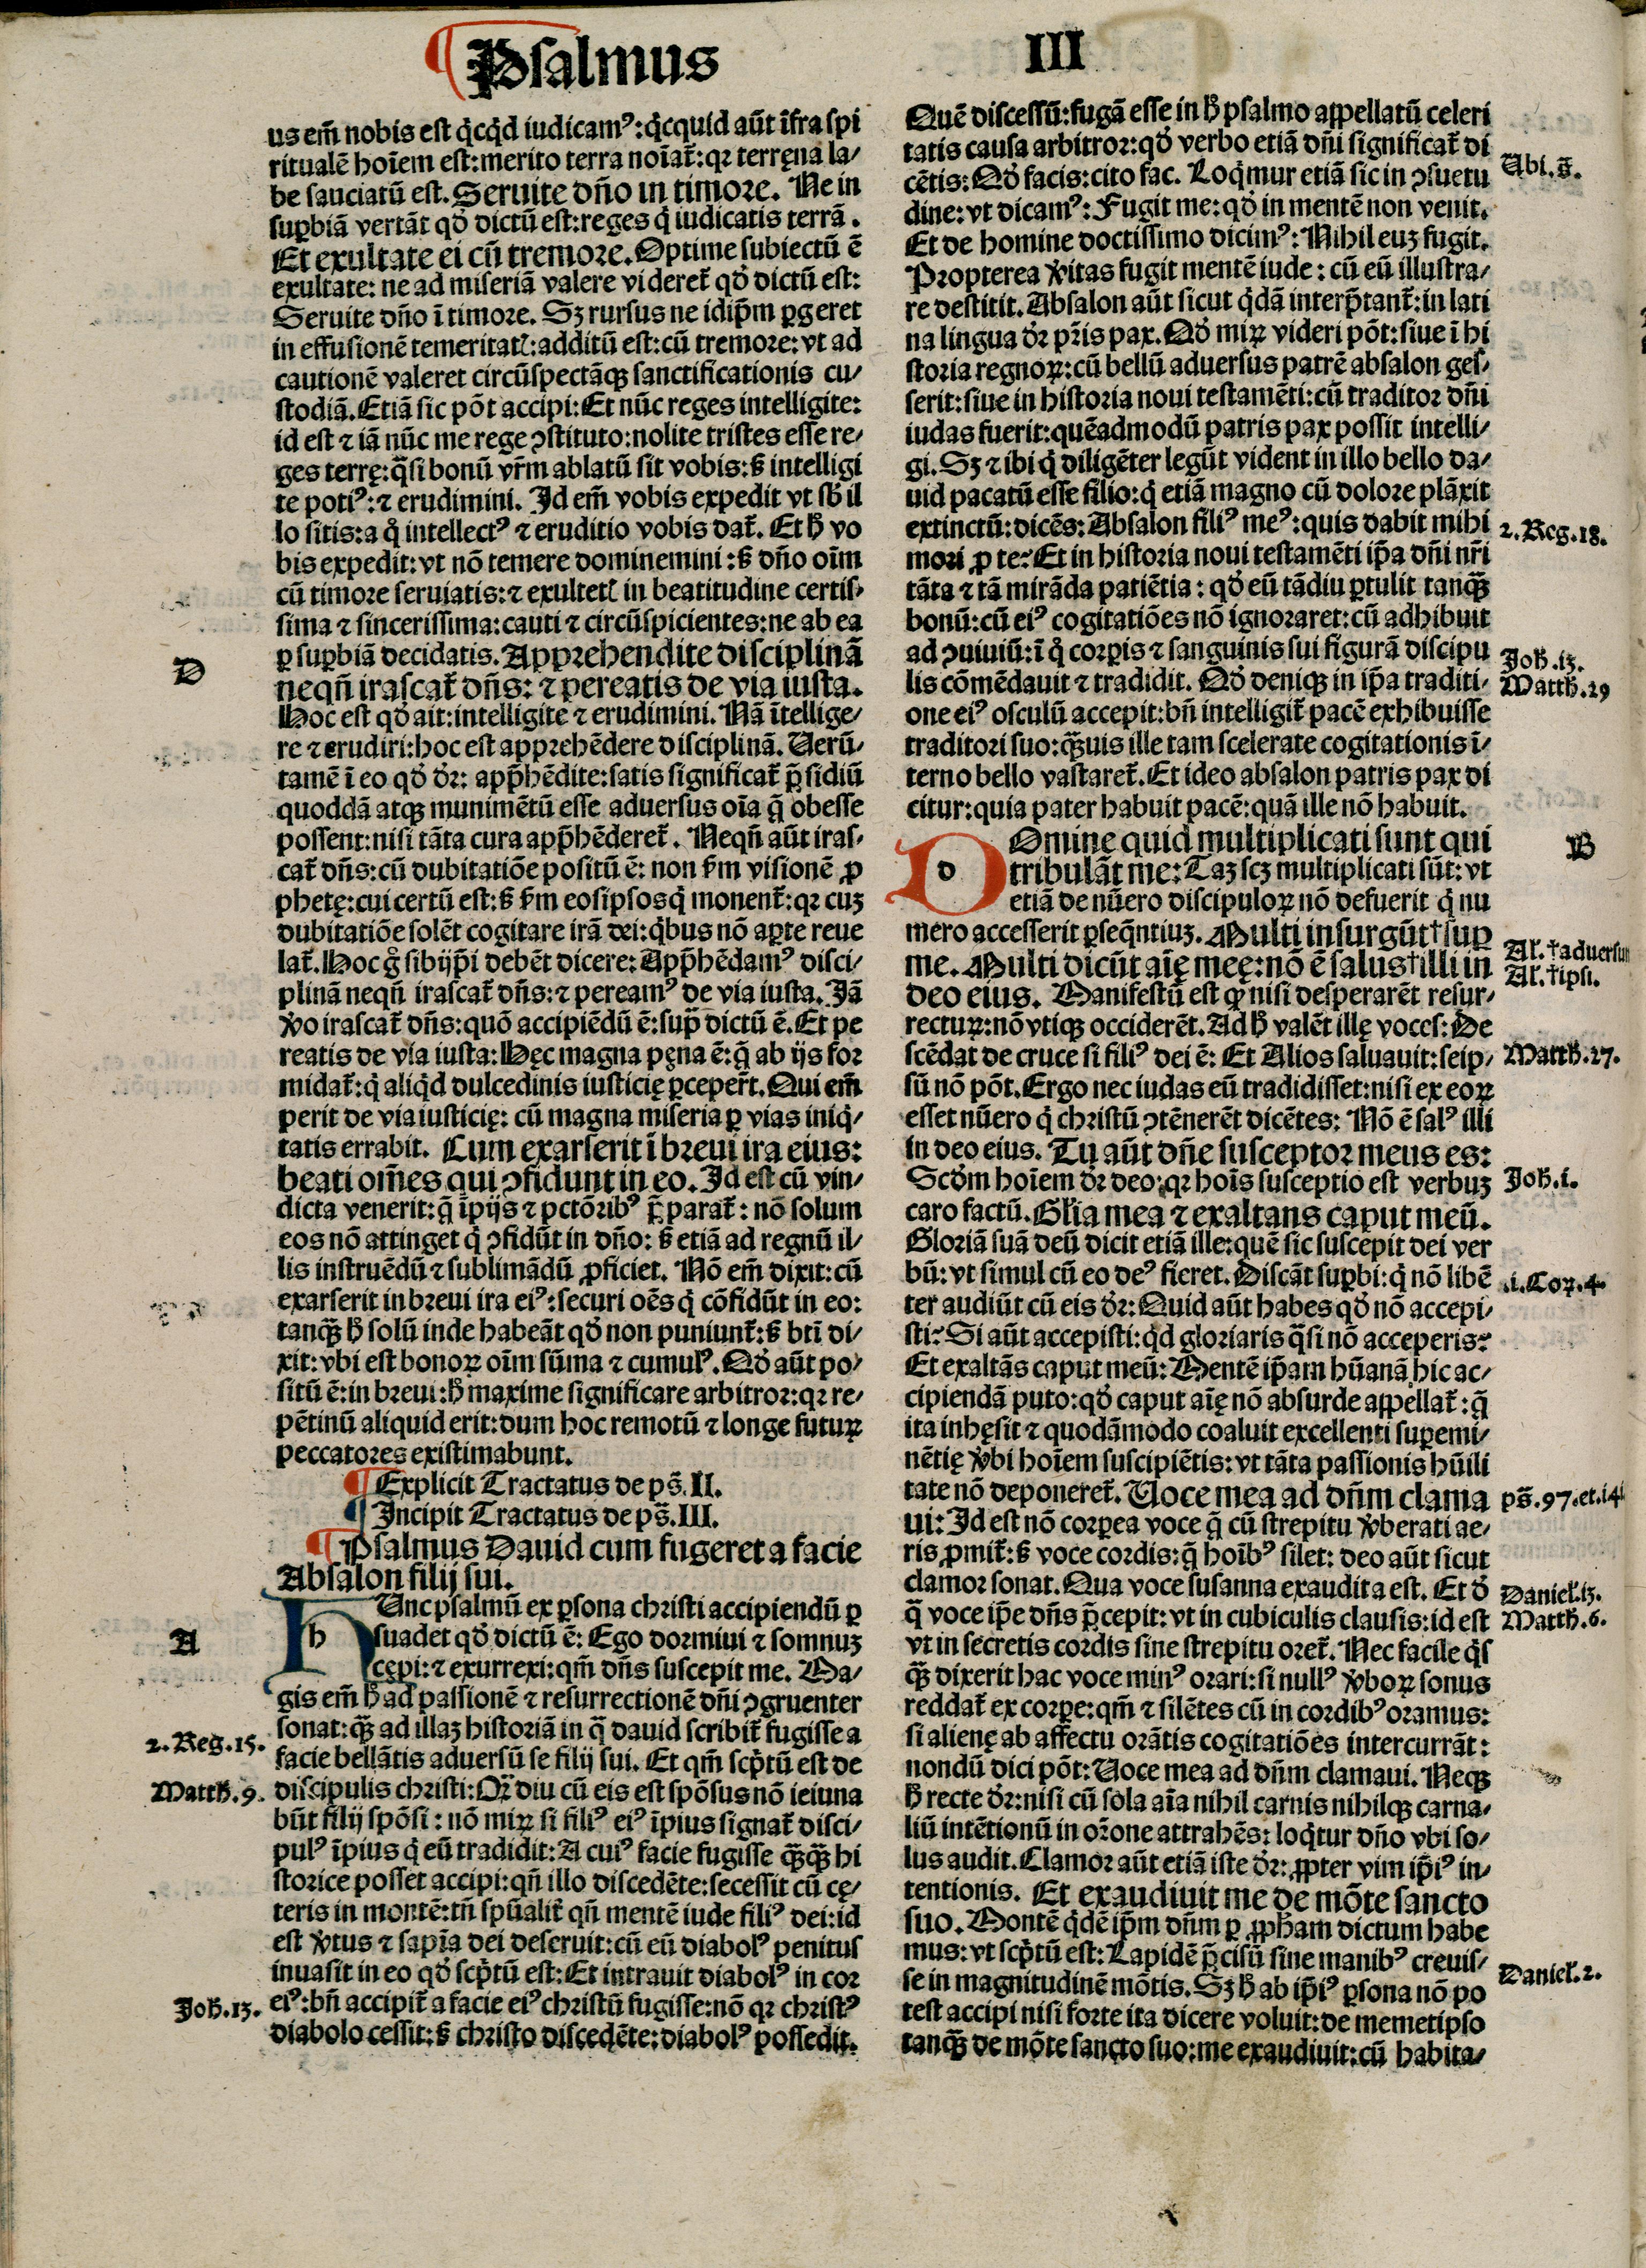 Psalmus
III
us em̄ nobis est q̇cq̇d iudicamꝰ: q̇cquid aūt īfra spi
ritualē hoīem est: merito terra noīat̄: qꝛ terręna la/
be sauciatū est. Seruite dn̄o in timore. Ne in
suꝑbiā vertāt qḋ dictū est: reges q̇ iudicatis terrā.
Et exultate ei cū tremore. Optime subiectū ē
exultate: ne ad miseriā valere videret̄ qḋ dictū est:
Seruite dn̄o ī timore. Sꝫ rursus ne idip̄m ꝑgeret
in effusionē temeritatꝭ: additū est: cū tremore: vt ad
cautionē valeret circūspectāqꝫ sanctificationis cu/
stodiā. Etiā sic pōt accipi: Et nūc reges intelligite:
id est ⁊ iā nūc me rege ꝯstituto: nolite tristes esse re/
ges terrę: q̄si bonū vr̄m ablatū sit vobis: ß intelligi
te potiꝰ: ⁊ erudimini. Id em̄ vobis expedit vt sb̄ il
lo sitis: a q̊ intellectꝰ ⁊ eruditio vobis dat̄. Et ħ vo
bis expedit: vt nō temere dominemini: ß dn̄o oīm
cū timore seruiatis: ⁊ exultetꝭ in beatitudine certis/
sima ⁊ sincerissima: cauti ⁊ circūspicientes: ne ab ea
ꝑ suꝑbiā decidatis. Apprehendite disciplinā
D
neqn̄ irascat̄ dn̄s: ⁊ pereatis de via iusta.
Hoc est qḋ ait: intelligite ⁊ erudimini. Nā ītellige/
re ⁊ erudiri: hoc est apprehēdere disciplinā. Uerū/
tamē ī eo qḋ dr̄: app̄hēdite: satis significat̄ p̄sidiū
quoddā atqꝫ munimētū esse aduersus oīa q̄ obesse
possent: nisi tāta cura app̄hēderet̄. Neqn̄ aūt iras/
cat̄ dn̄s: cū dubitatiōe positū ē: non ẜm visionē ꝓ
phetę: cui certū est: ß ẜm eosipsos q̇ monent̄: qꝛ cuꝫ
dubitatiōe solēt cogitare irā dei: q̇bus nō aꝑte reue
lat̄. Hoc g̊ sibijp̄i debēt dicere: App̄hēdamꝰ disci/
plinā neqn̄ irascat̄ dn̄s: ⁊ pereamꝰ de via iusta. Iā
ꝟo irascat̄ dn̄s: quō accipiēdū ē: sup̄ dictū ē. Et pe
reatis de via iusta: Hęc magna pęna ē: q̄ ab ijs for
midat̄: q̇ aliq̇d dulcedinis iusticię ꝑceper̄t. Qui em̄
perit de via iusticię: cū magna miseria ꝑ vias iniq̇/
tatis errabit. Cum exarserit ī breui ira eius:
beati om̄es qui ꝯfidunt in eo. Id est cū vin/
dicta venerit: q̄ īpijs ⁊ pctōribꝰ p̄parat̄: nō solum
eos nō attinget q̇ ꝯfidūt in dn̄o: ß etiā ad regnū il/
lis instruēdū ⁊ sublimādū ꝓficiet. Nō em̄ dixit: cū
exarserit in breui ira eiꝰ: securi oēs q̇ cōfidūt in eo:
tanqꝫ̄ ħ solū inde habeāt qḋ non puniunt̄: ß btī di/
xit: vbi est bonoꝝ oīm sūma ⁊ cumulꝰ. Qḋ aūt po/
situ ē: in breui: ħ maxime significare arbitror: qꝛ re/
pētinū aliquid erit: dum hoc remotū ⁊ longe futuꝝ
peccatores existimabunt.
¶ Explicit Tractatus de ps̄. II.
¶ Incipit Tractatus de ps̄. III.
¶ Psalmus Dauid cum fugeret a facie
Absalon filij sui.
hUnc psalmū ex ꝑsona christi accipiendū ꝑ
A
suadet qḋ dictū ē: Ego dormiui ⁊ somnuꝫ
cępi: ⁊ exurrexi: qm̄ dn̄s suscepit me. Ma/
gis em̄ ħ ad passionē ⁊ resurrectionē dn̄i ꝯgruenter
sonat: qꝫ̄ ad illaꝫ historiā in q̄ dauid scribit̄ fugisse a
2. Reg. 15.
facie bellātis aduersū se filij sui. Et qm̄ scṗtū est de
Matth. 9.
discipulis christi: Qr̄ diu cū eis est spōsus nō ieiuna
būt filij spōsi: nō miꝝ si filiꝰ eiꝰ īpius signat̄ disci/
pulꝰ īpius q̇ eū tradidit: A cuiꝰ facie fugisse qꝫ̄qꝫ̄ hi
storice posset accipi: qn̄ illo discedēte: secessit cū cę/
teris in montē: tn̄ spūalit̄ qn̄ mentē iude filiꝰ dei: id
est ꝟtus ⁊ sapīa dei deseruit: cū eū diabolꝰ penitus
inuasit in eo qḋ scṗtū est: Et intrauit diabolꝰ in cor
Joh. 13.
eiꝰ: bn̄ accipit̄ a facie eiꝰ christū fugisse: nō qꝛ christꝰ
diabolo cessit: ß christo discedēte: diabolꝰ possedit.
Quē discessū: fugā esse in ħ psalmo appellatū celeri
tatis causa arbitror: qḋ verbo etiā dn̄i significat̄ di
Ubi. s̄.
cētis: Qḋ facis: cito fac. Loq̇mur etiā sic in ꝯsuetu
dine: vt dicamꝰ: Fugit me: qḋ in mentē non venit.
Et de homine doctissimo dicimꝰ: Nihil euꝫ fugit.
Propterea ꝟitas fugit mentē iude: cū eū illustra/
re destitit. Absalon aūt sicut q̇dā interp̄tant̄: in lati
na lingua dr̄ pr̄is pax. Qḋ miꝝ videri pōt: siue ī hi
storia regnoꝝ: cū bellū aduersus patrē absalon ges/
serit: siue in historia noui testamēti: cū traditor dn̄i
iudas fuerit: quēadmodū patris pax possit intelli/
gi. Sꝫ ⁊ ibi q̇ diligēter legūt vident in illo bello da/
uid pacatū esse filio: q̇ etiā magno cū dolore plāxit
extinctū: dicēs: Absalon filiꝰ meꝰ: quis dabit mihi
2. Reg. 18.
mori ꝓ te? Et in historia noui testamēti ip̄a dn̄i nr̄i
tāta ⁊ tā mirāda patiētia: qḋ eū tādiu ꝑtulit tanqꝫ̄
bonū: cū eiꝰ cogitatiōes nō ignoraret: cū adhibuit
ad ꝯuiuiū: ī q̊ corꝑis ⁊ sanguinis sui figurā discipu
Joh. 13.
lis cōmēdauit ⁊ tradidit. Qḋ deniqꝫ in ip̄a traditi/
Matth. 29
one eiꝰ osculū accepit: bn̄ intelligit̄ pacē exhibuisse
traditori suo: qꝫ̄uis ille tam scelerate cogitationis ī/
terno bello vastaret̄. Et ideo absalon patris pax di
citur: quia pater habuit pacē: quā ille nō habuit.
dOmine quid multiplicati sunt qui
B
tribulāt me: Taꝫ scꝫ multiplicati sūt: vt
etiā de nūero discipuloꝝ nō defuerit q̇ nu
mero accesserit ꝑseq̄ntiuꝫ. Multi insurgūt † suꝑ
Al. † aduersum
me. Multi dicūt aīę meę: nō ē salus † illi in
Al. † ipsi.
deo eius. Manifestū est ꝙ nisi desperarēt resur/
recturꝝ: nō vtiqꝫ occiderēt. Ad ħ valēt illę voces: De
scēdat de cruce si filiꝰ dei ē: Et Alios saluauit: seip/
Matth. 27.
sū nō pōt. Ergo nec iudas eū tradidisset: nisi ex eoꝝ
esset nūero q̇ christū ꝯtēnerēt dicētes: Nō ē salꝰ illi
in deo eius. Tu aūt dn̄e susceptor meus es:
Scḋm hoīem dr̄ deo: qꝛ hoīs susceptio est verbuꝫ
Joh. i.
caro factū. Gl̄ia mea ⁊ exaltans caput meū.
Gloriā suā deū dicit etiā ille: quē sic suscepit dei ver
bū: vt simul cū eo deꝰ fieret. Discāt suꝑbi: q̇ nō libē
.i. Coꝝ. 4
ter audiūt cū eis dr̄: Quid aūt habes qḋ nō accepi/
sti? Si aūt accepisti: qd gloriaris q̄si nō acceperis?
Et exaltās caput meū: Mentē ip̄am hūanā hic ac/
cipiendā puto: qḋ caput aīę nō absurde appellat̄: q̄
ita inhęsit ⁊ quodāmodo coaluit excellenti suꝑemi/
nētię ꝟbi hoīem suscipiētis: vt tāta passionis hūili
tate nō deponeret̄. Uoce mea ad dn̄m clama
ps̄. 97. et. 14
ui: Id est nō corꝑea voce q̄ cū strepitu ꝟberati ae/
ris ꝓmit̄: ß voce cordis: q̄ hoībꝰ silet: deo aūt sicut
clamor sonat. Qua voce susanna exaudita est. Et ḋ
Daniel̄. 13.
q̄ voce ip̄e dn̄s p̄cepit: vt in cubiculis clausis: id est
Matth. 6.
vt in secretis cordis sine strepitu oret̄. Nec facile q̇s
qꝫ̄ dixerit hac voce minꝰ orari: si nullꝰ ꝟboꝝ sonus
reddat̄ ex corꝑe: qm̄ ⁊ silētes cū in cordibꝰ oramus:
si alienę ab affectu orātis cogitatiōes intercurrāt:
nondū dici pōt: Uoce mea ad dn̄m clamaui. Neqꝫ
ħ recte dr̄: nisi cū sola aīa nihil carnis nihilqꝫ carna/
liū intētionū in or̄one attrahēs: loq̇tur dn̄o vbi so/
lus audit. Clamor aūt etiā iste dr̄: ꝓpter vim ip̄iꝰ in/
tentionis. Et exaudiuit me de mōte sancto
suo. Montē q̇dē ip̄m dn̄m ꝑ ꝓpħam dictum habe
mus: vt scṗtū est: Lapidē p̄cisū sine manibꝰ creuis/
Daniel̄. 2.
se in magnitudinē mōtis. Sꝫ ħ ab ip̄iꝰ ꝑsona nō po
test accipi nisi forte ita dicere voluit: de memetipso
tanqꝫ̄ de mōte sancto suo: me exaudiuit: cū habita/